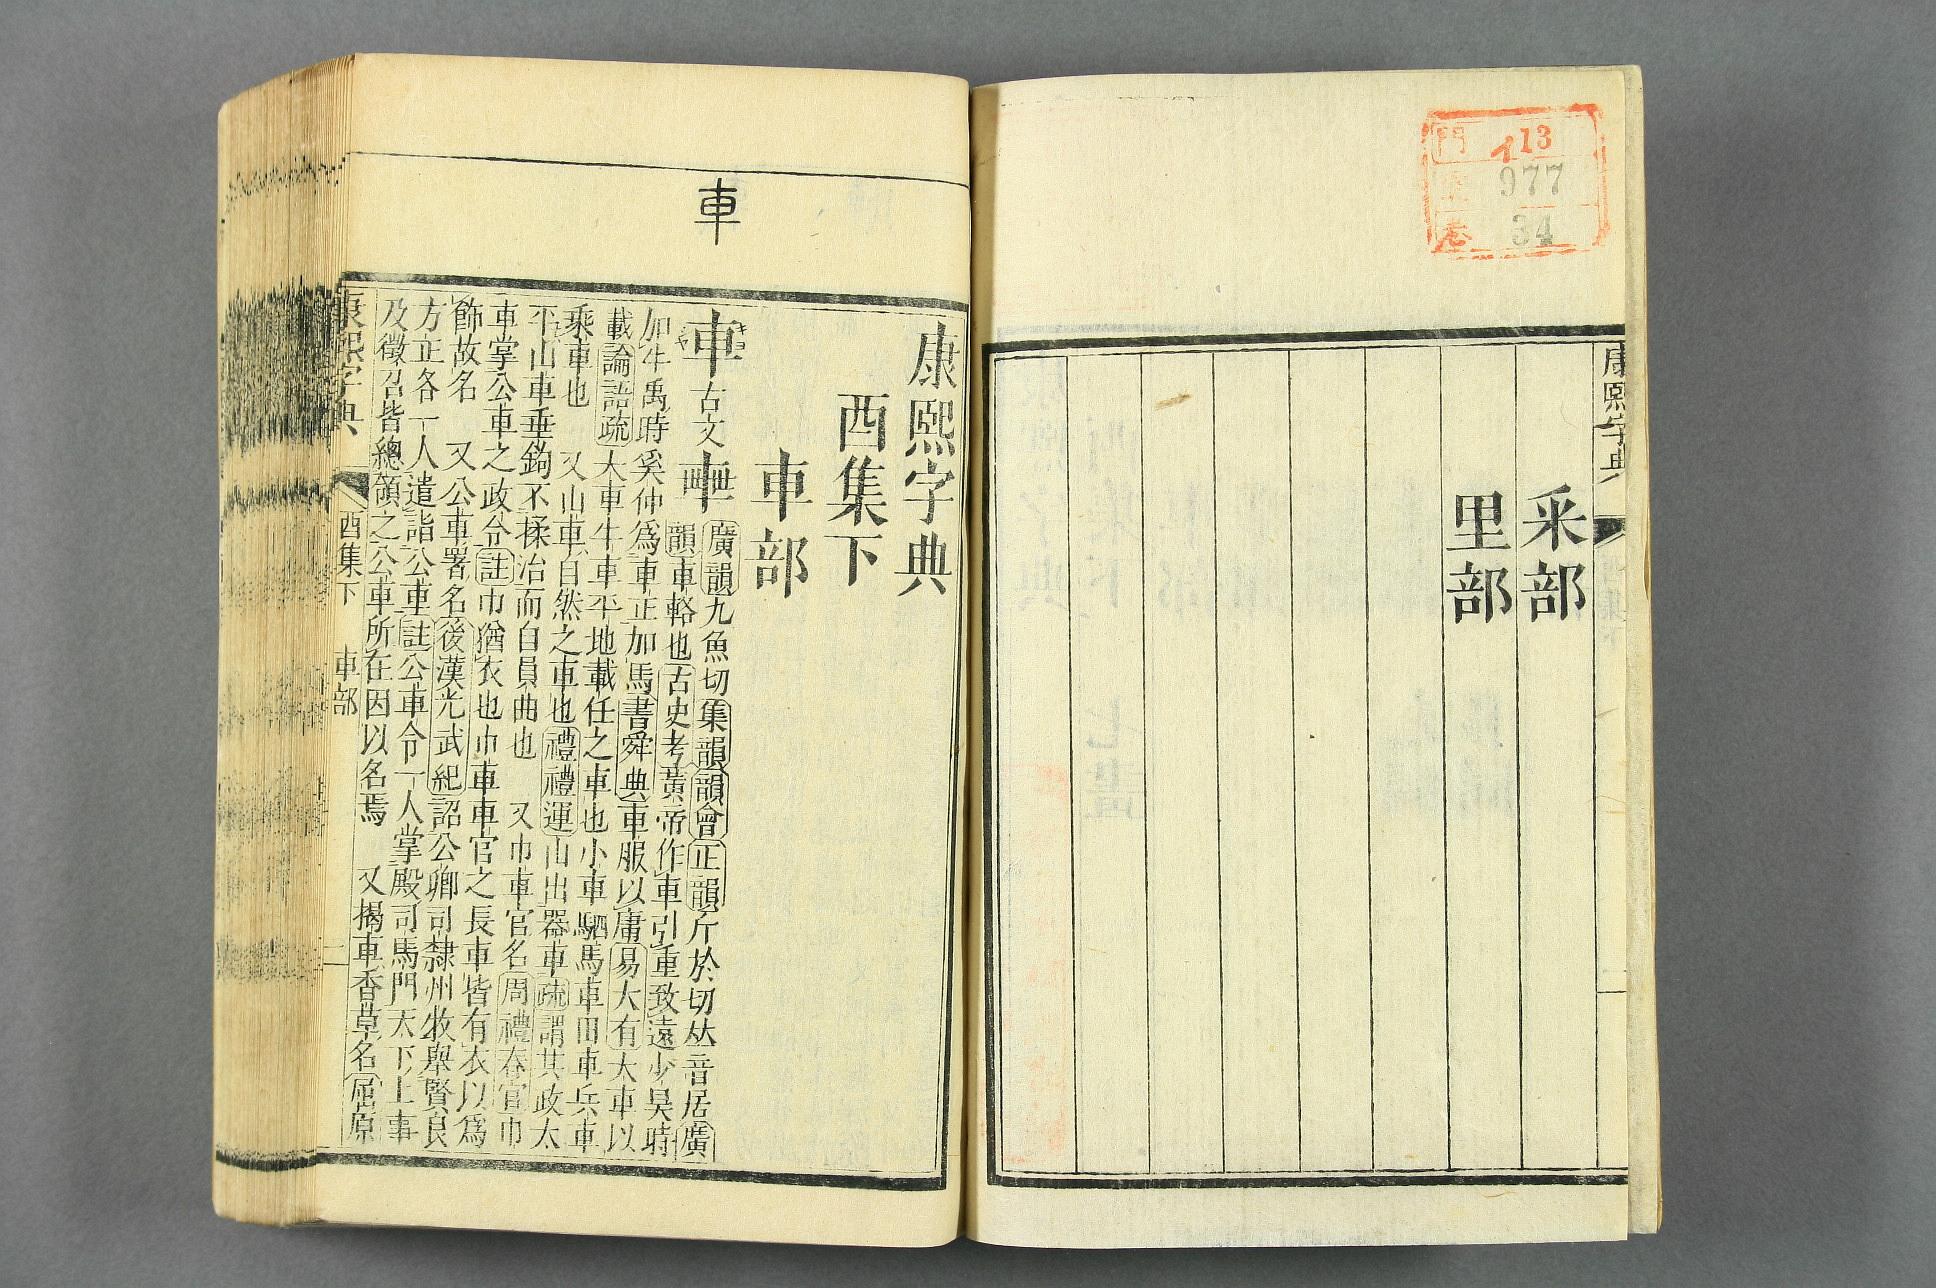 門 イ13
977
卷 34
康熙字典
釆部
里部
車
康熙字典
酉集下
車部
車 古文𨏖
廣韻九魚切集韻韻會正韻斤於切𠀤音居廣
韻車輅也古史考黃帝作車引重致遠少昊時
加牛禹時奚仲爲車正加馬書舜典車服以庸易大有大車以
載論語疏大車牛車平地載任之車也小車駟馬車田車兵車
乘車也 又山車自然之車也禮禮運山出器車疏謂其政太
平山車垂鉤不揉治而自員曲也 又巾車官名周禮春官巾
車掌公車之政令註巾猶衣也巾車車官之長車皆有衣以爲
飾故名 又公車署名後漢光武紀詔公卿司隸州牧舉賢良
方正各一人遣詣公車註公車令一人掌殿司馬門天下上事
及徵召皆總領之公車所在因以名焉 又揭車香草名屈原
康熙字典 酉集下 車部 二